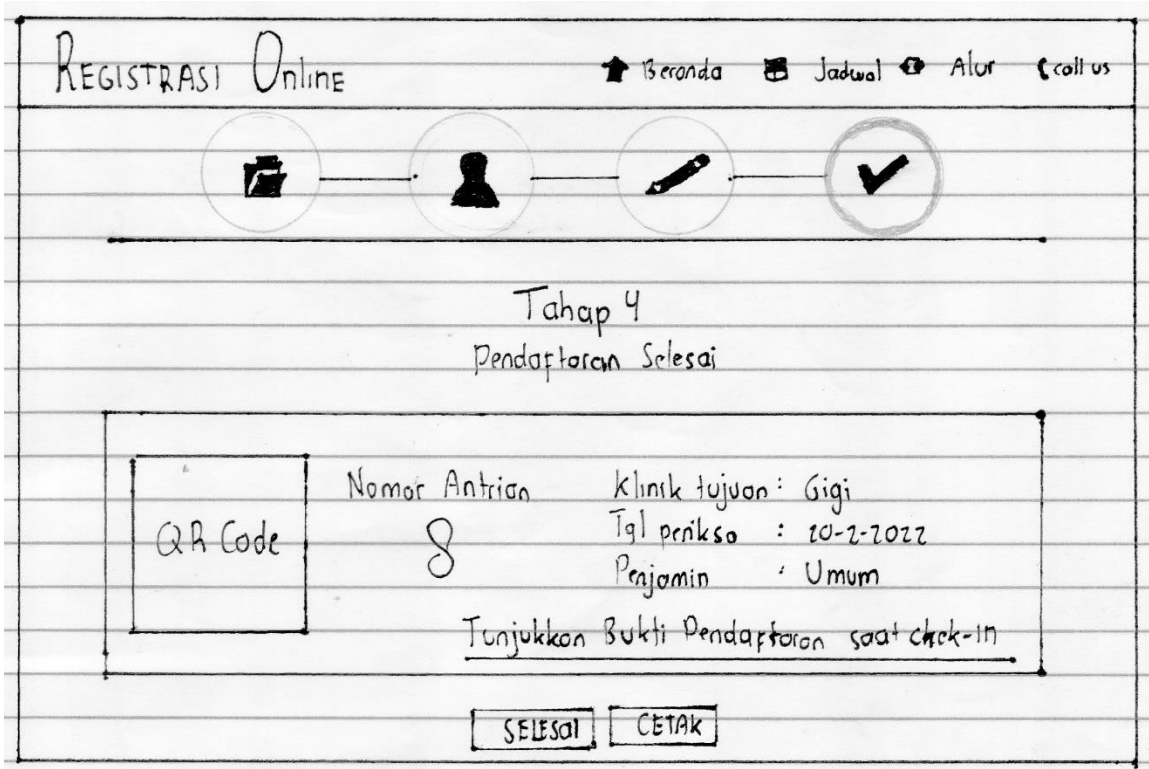 REGISTRASI Online
Beranda Jadwal Alur call us
Tahap 4
Pendaftaran Selesai
QR Code
Nomor Antrian
8
Klinik tujuan : Gigi
Tgl periksa : 20-2-2022
Penjamin : Umum
Tunjukkan Bukti Pendaftaran saat check-in
SELESAI CETAK